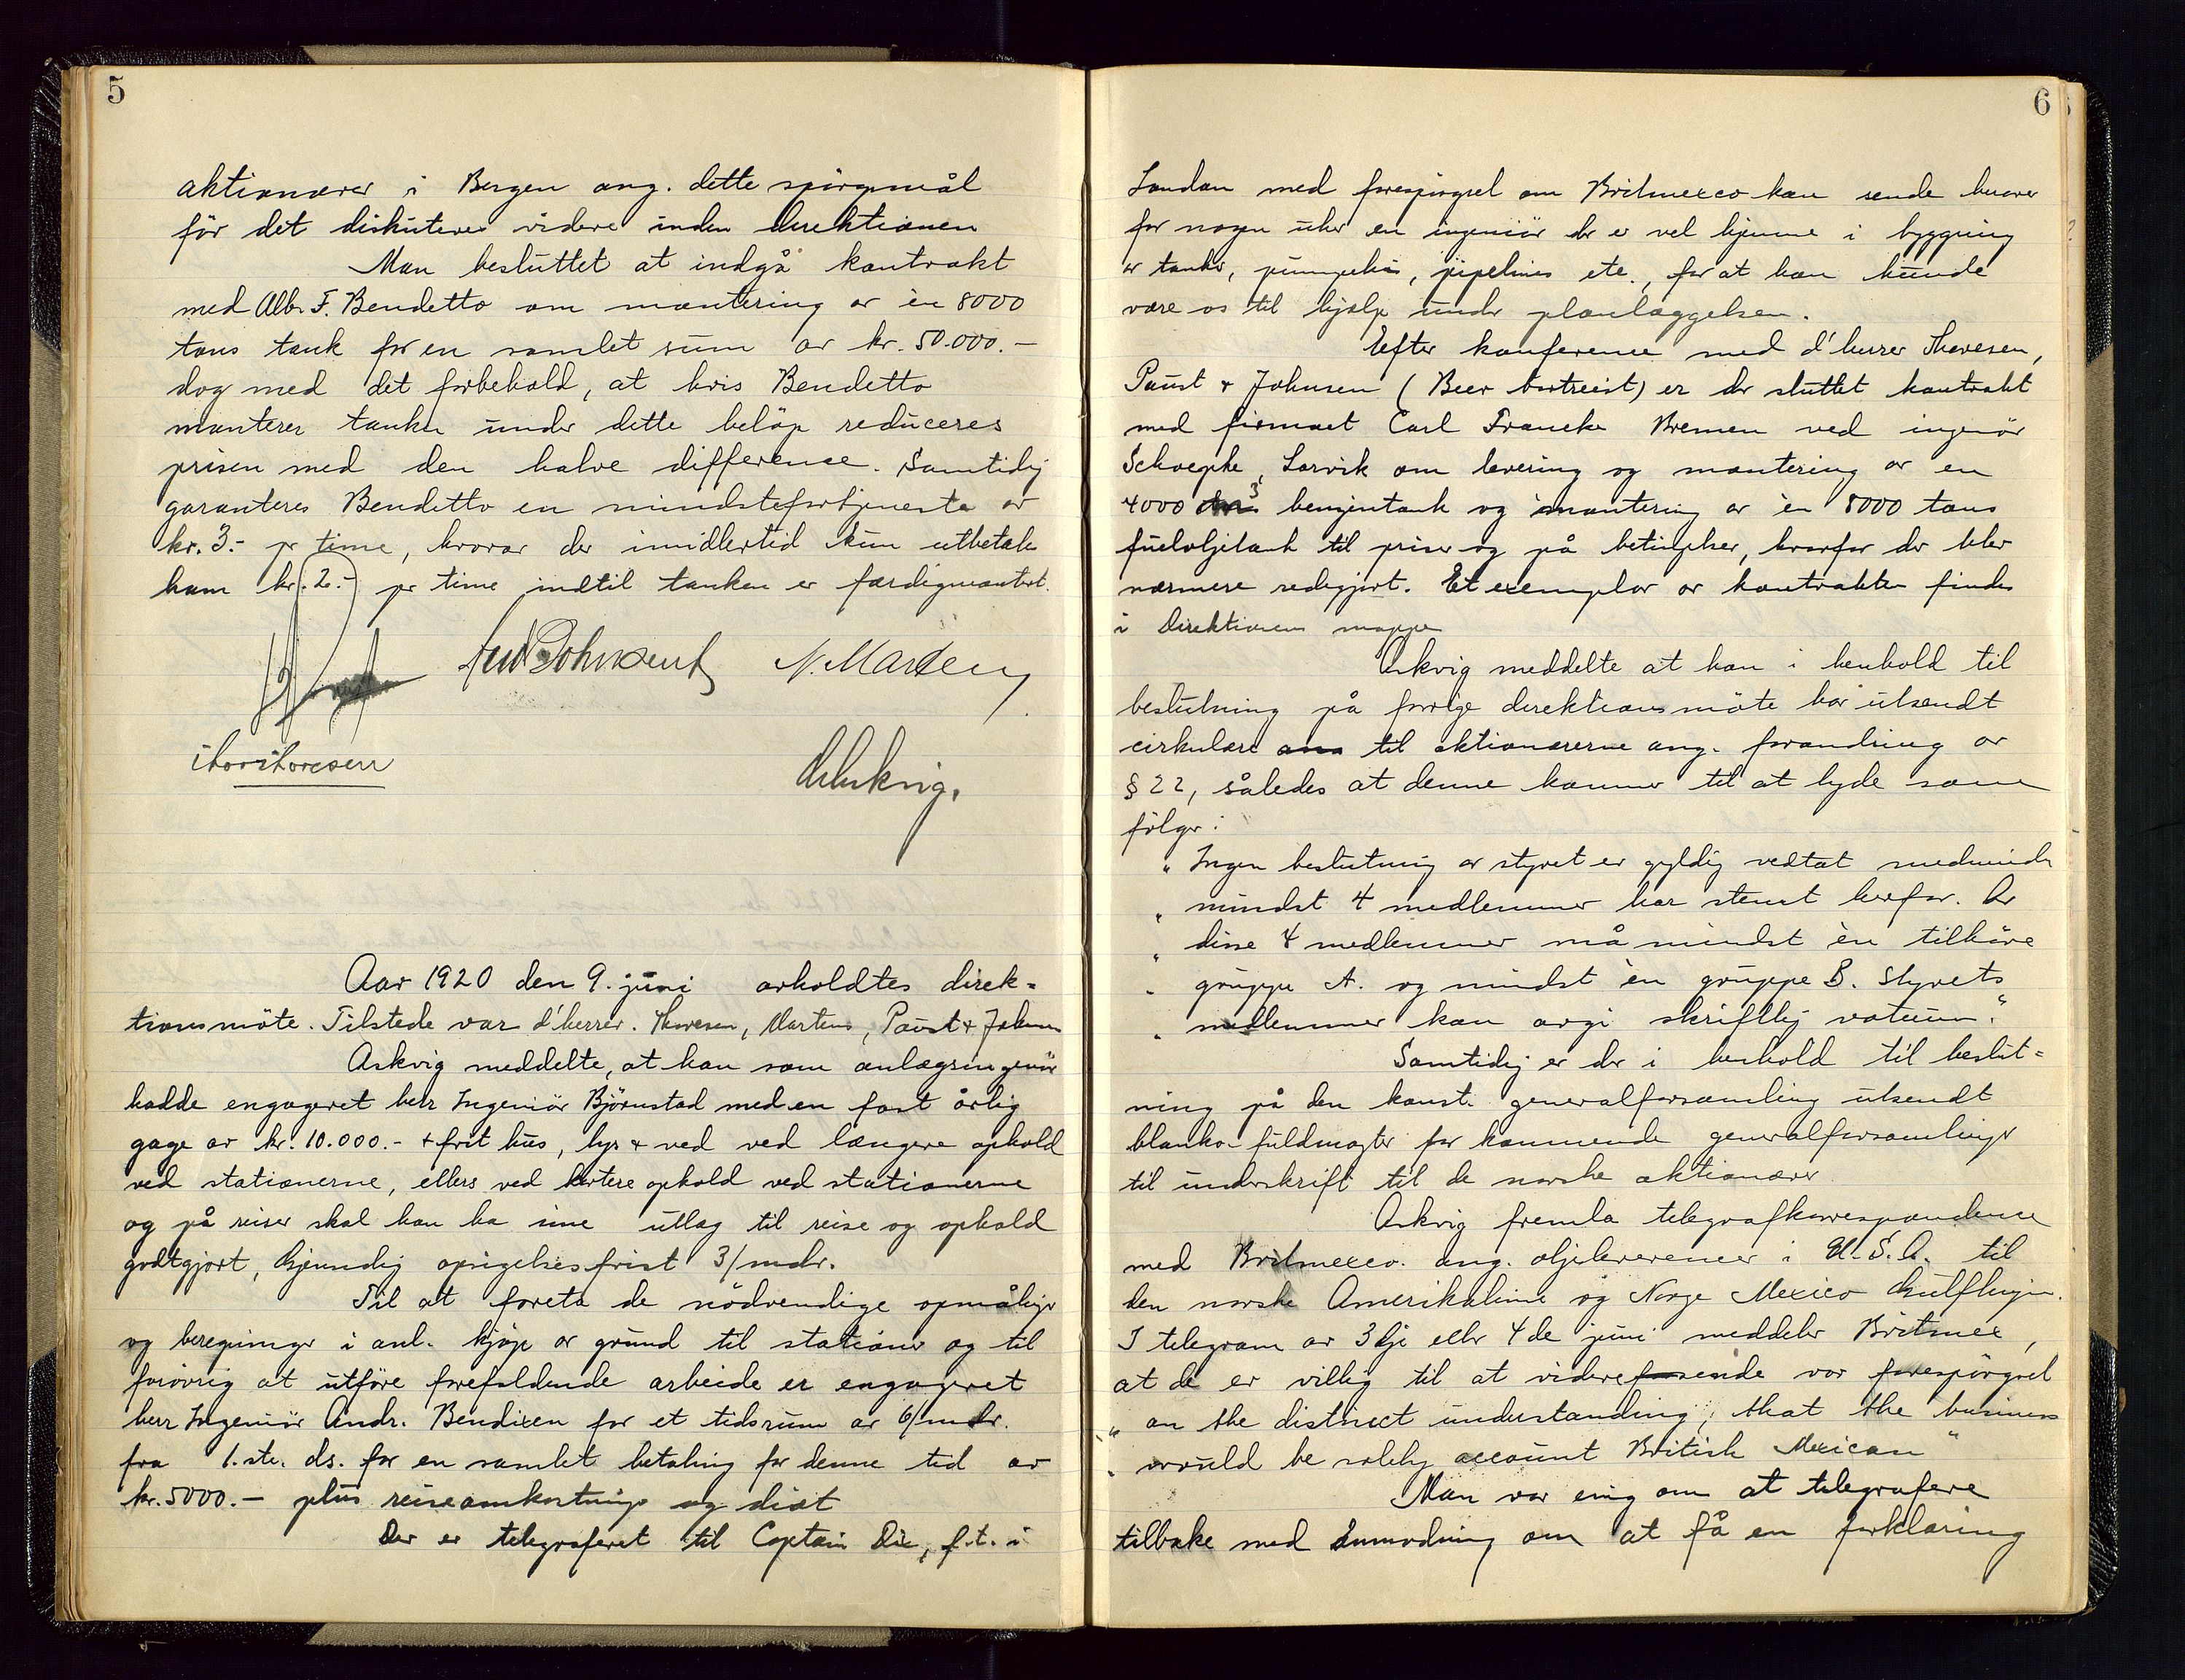 5
aktionærer i Bergen ang. dette spörgsmål
för det diskuteres videre inden direktionen
Man besluttet at indgå kontrakt
med Alb. F. Bendetto om montering av èn 8000
tons tank for en samlet sum av kr. 50.000.-
dog med det forbehold, at hvis Bendetto
monterer tanken under dette belöp reduceres
prisen med den halve difference. Samtidig
garanteres Bendetto en mindstefortjeneste av
kr. 3.- pr time, hvorav der imidlertid kun utbetales
ham kr. 2.- pr time indtil tanken er færdigmontert.
N. Martens
Thor Thoresen
Askvig.
Aar 1920 den 9. juni avholdtes direk-
tionsmöte. Tilstede var d'herrer. Thoresen, Martens, Paust & Johnsen
Askvig meddelte, at han som anlægsingeniör
hadde engageret herr Ingeniör Björnstad med en fast årlig
gage av kr. 10.000.- + frit hus, lys & ved ved længere ophold
ved stationerne, ellers ved kortere ophold ved stationerne
og på reiser skal han ha sine utlæg til reise og ophold
godtgjort, Gjensidig opsigelsesfrist 3/mdr.
Til at foreta de nödvendige opmålinger
og beregninger i anl. kjöp av grund til stationer og til
forövrig at utföre forefaldende arbeide er engageret
herr Ingeniör Andr. Bendixen for et tidsrum av 6/mdr.
fra 1.ste. ds. for en samlet betaling for denne tid av
kr. 5000.- plus reiseomkostninger og diæt
Der er telegraferet til Captain Dix, f.t. i
6
London med forespörgsel om Britmexco kan sende herover
for nogen uker en ingeniör der er vel hjemme i bygning
av tanker, pumpehus, pipelines etc., for at han kunde
være os til hjælp under planlæggelsen.
Efter konference med d'herrer Thoresen,
Paust & Johnsen (Beer bortreist) er der sluttet kontrakt
med firmaet Carl Francke Bremen ved ingeniör
Schoepke, Larvik om levering og montering av en
4000 m3 benzintank og montering av èn 8000 tons
fueloljetank til priser og på betingelser, hvorfor der blev
nærmere redegjort. Et exemplar av kontrakten findes
i Direktionens mappe
Askvig meddelte at han i henhold til
beslutning på forrige direktionsmöte har utsendt
cirkulære til aktionærerne ang. forandring av
§ 22, således at denne kommer til at lyde som
fölger:
" Ingen beslutning av styret er gyldig vedtat medmindre
" mindst 4 medlemmer har stemt herfor. Av
" disse 4 medlemmer må mindst èn tilhöre
" gruppe A. og mindst èn gruppe B. Styrets
" medlemmer kan avgi skriftlig votum."
Samtidig er der i henhold til beslut-
ning på den konst. generalforsamling utsendt
blanko-fuldmagter for kommende generalforsamlinger
til underskrift til de norske aktionærer
Askvig fremla telegrafkorrespondence
med Britmexco. ang. oljeleverancer i U.S.A. til
den norske Amerikalinie og Norge Mexico Gulflinjen.
I telegram av 3dje eller 4de juni meddeler Britmex,
at de er villig til at videresende vor forespörgsel
" on the distinct understanding, that the business
" would be solely account British Mexican"
Man var enig om at telegrafere
tilbake med anmodning om at få en forklaring